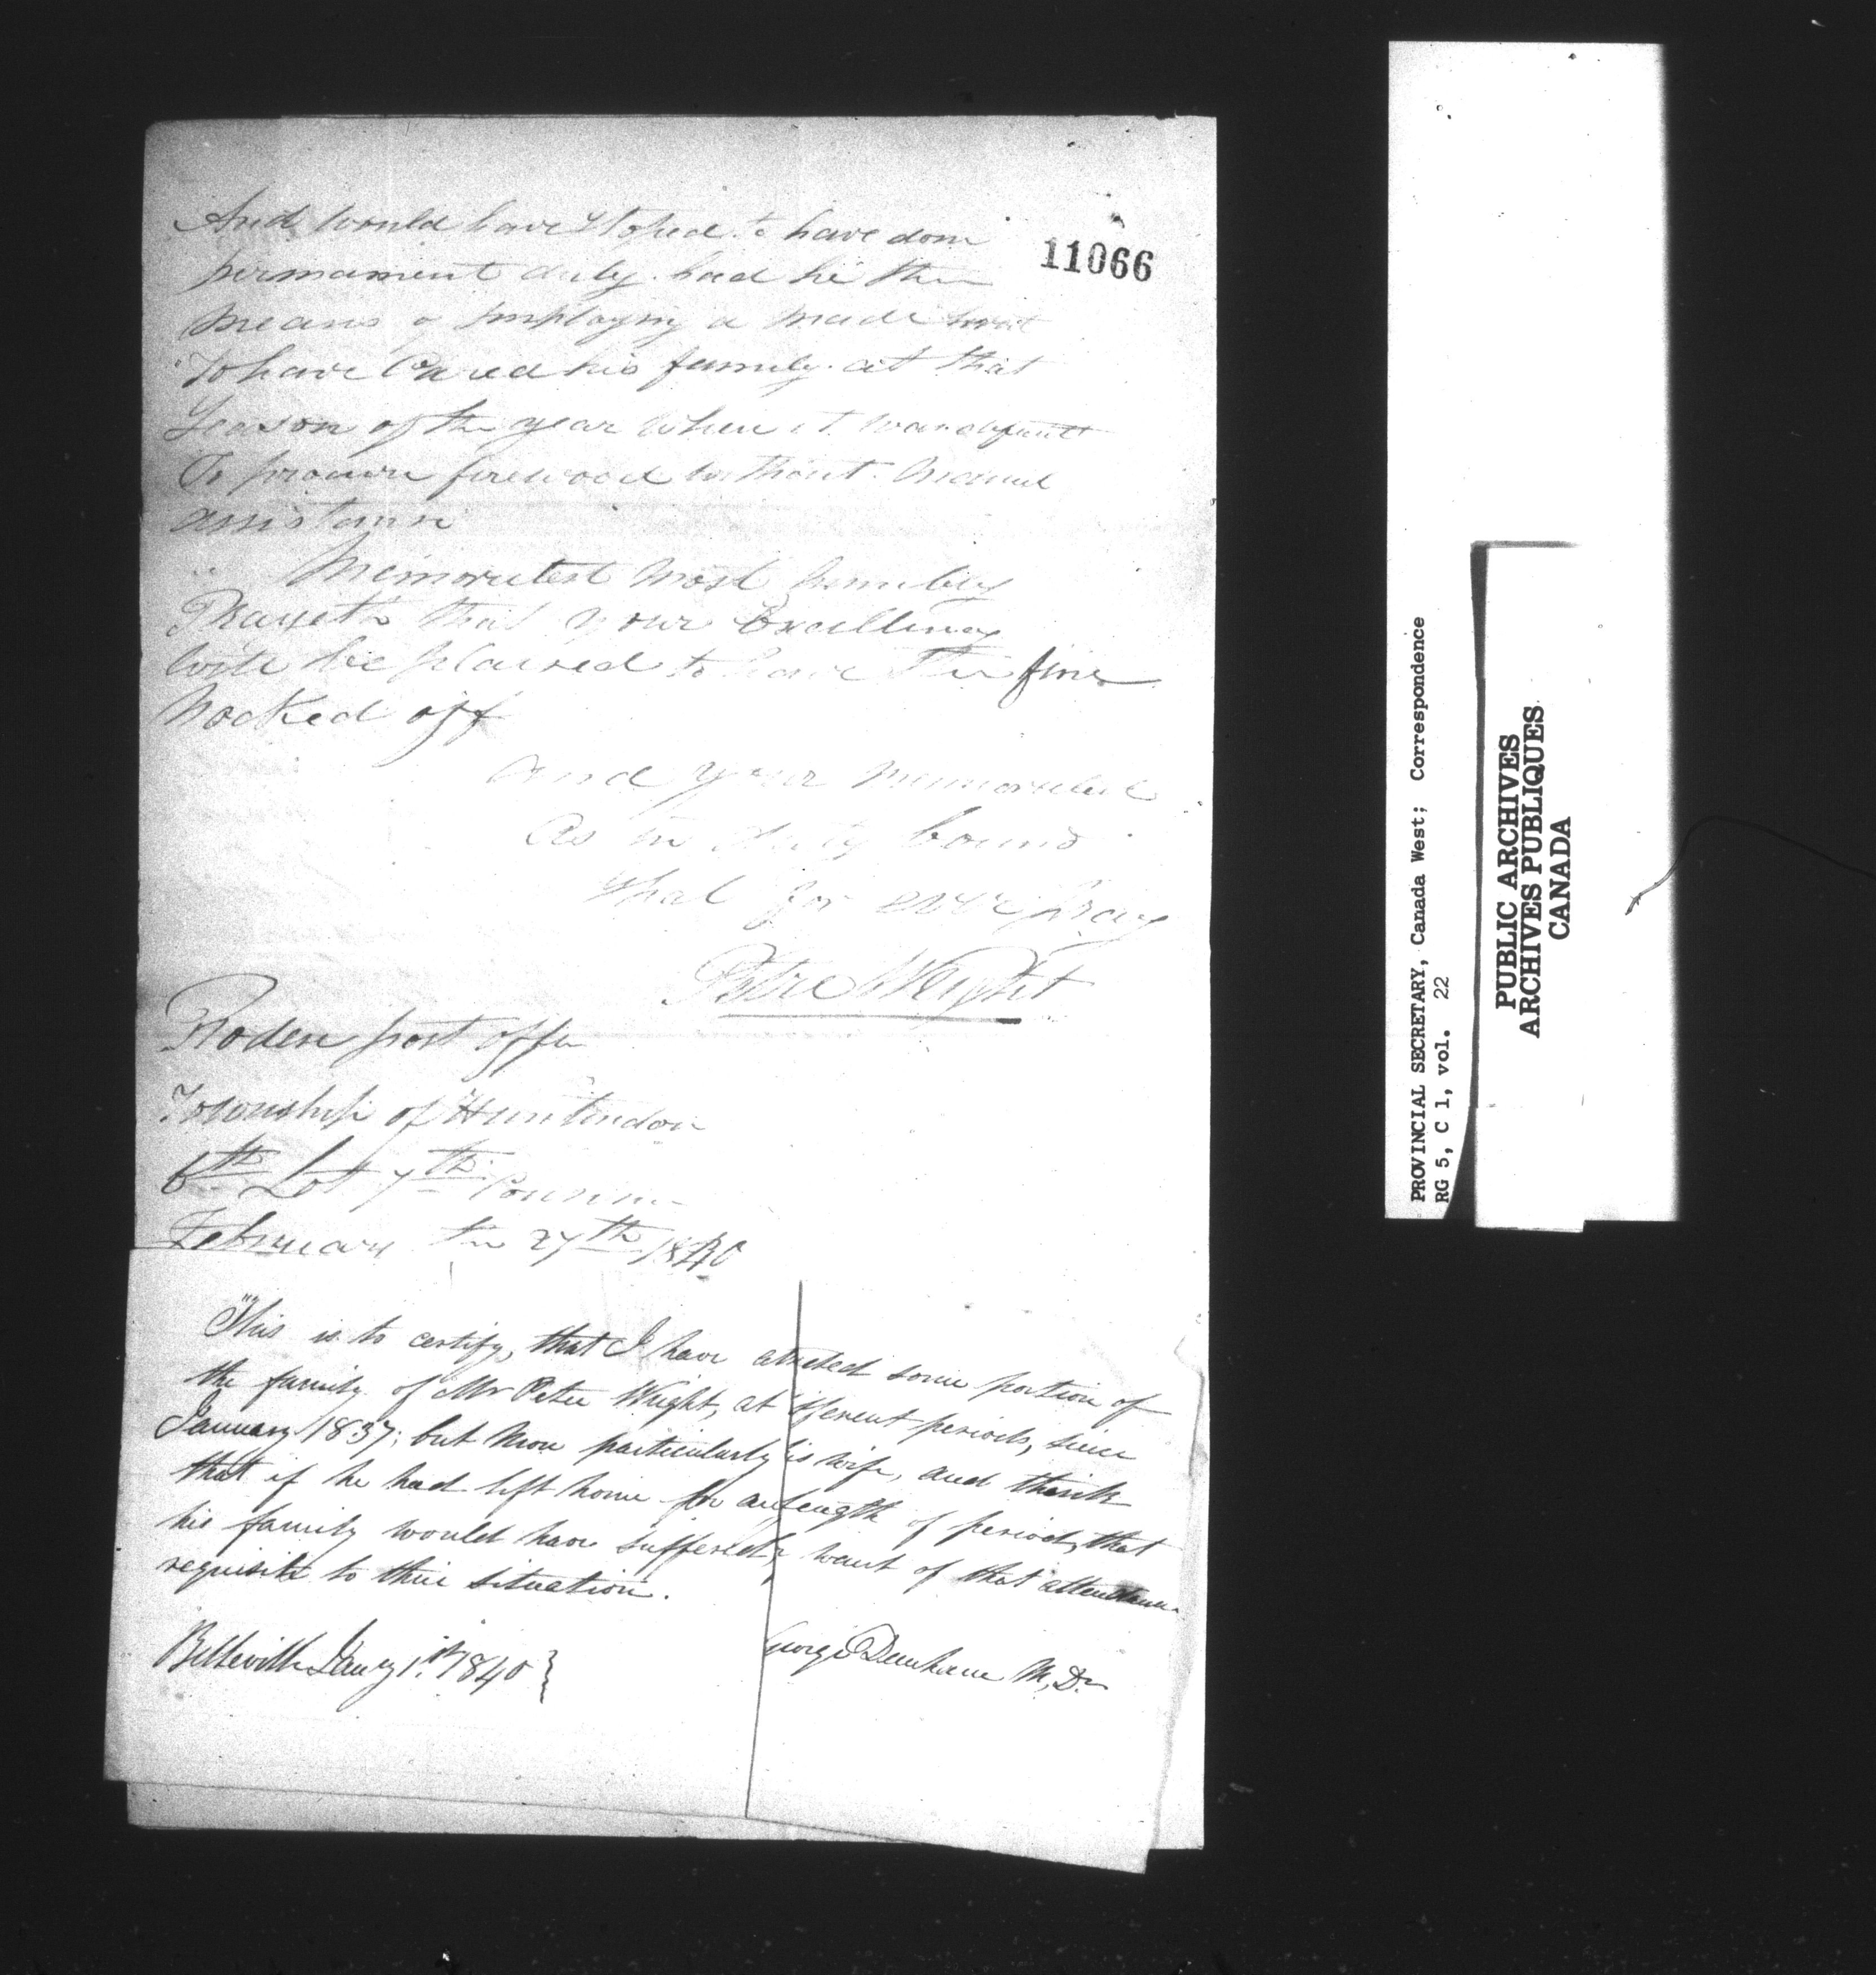 11066
And would have stoped to have don
permament duty had he the
means of employing a made
To have Cared his family at that
Season of the year when it was
To procure firewood without
assistance
Memorilest most humbly
Prayeth that your Excellency
will be plaised to have the fine
nocked off
and your memorilest
As in duty bound
shal for ever pray
Petre Wright
Roden post offic
Township of Huntindon
6th Lot 7th
February the 27th 1840
This is to certify, that I have attended some portion of
the family of Mr Peter Wright, at different periods, since
January 1837; but more particularly his wife, and think
that if he had left home for any length of period, that
his family would have suffered, want of that attendance
requisite to their situation.
Belleville Jany 1st 1840
George Denhame M,D.
PROVINCIAL SECRETARY, Canada West; Correspondence
RG 5, C 1, vol. 22
PUBLIC ARCHIVES
ARCHIVES PUBLIQUES
CANADA